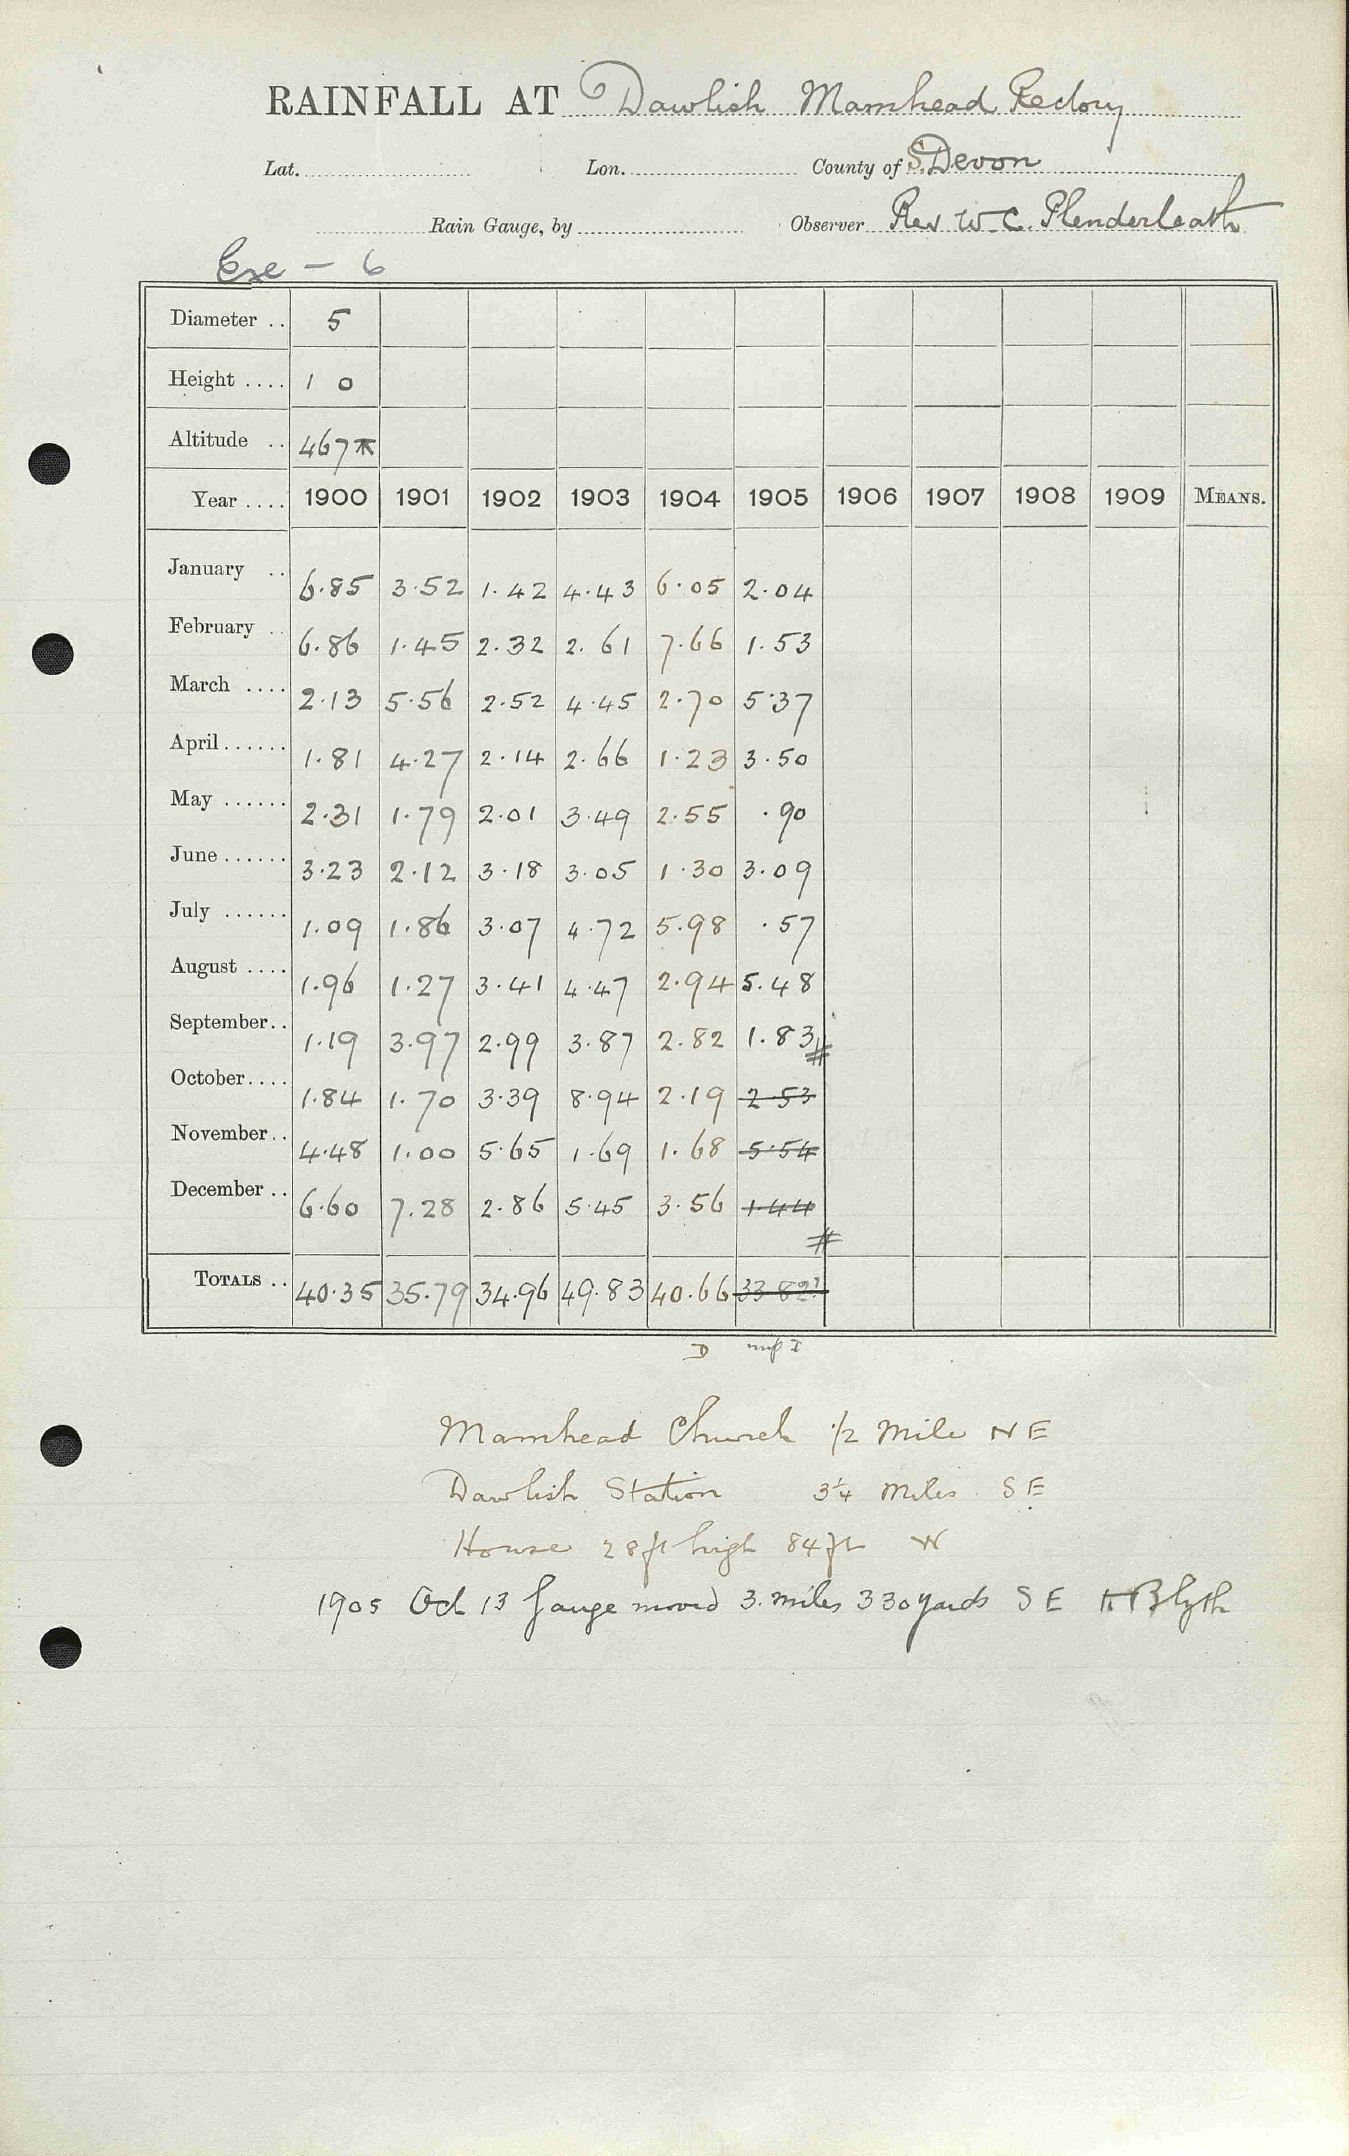 RAINFALL AT Dawlish Mamhead Rectory
Lat. Lon. County of S. Devon
Rain Gauge, by Observer Rev W. C. Plenderleath
Exe - 6
Diameter .. 5
Height .... 1 0
Altitude .. 467
Year .... 1900 1901 1902 1903 1904 1905 1906 1907 1908 1909 MEANS.
January .. 6.85 3.52 1.42 4.43 6.05 2.04
February .. 6.86 1.45 2.32 2.61 7.66 1.53
March .... 2.13 5.56 2.52 4.45 2.70 5.37
April...... 1.81 4.27 2.14 2.66 1.23 3.50
May ...... 2.31 1.79 2.01 3.49 2.55 .90
June...... 3.23 2.12 3.18 3.05 1.30 3.09
July ...... 1.09 1.86 3.07 4.72 5.98 .57
August .... 1.96 1.27 3.41 4.47 2.94 5.48
September.. 1.19 3.97 2.99 3.87 2.82 1.83 #
October.... 1.84 1.70 3.39 8.94 2.19 2 53
November.. 4.48 1.00 5.65 1.69 1.68 5.54
December .. 6.60 7.28 2.86 5.45 3.56 1.44
#
TOTALS .. 40.35 35.79 34.96 49.83 40.66 33 82?
D I
Mamhead Church 1/2 Mile NE
Dawlish Station 3 1/4 Miles SE
House 28ft high 84ft W
1905 Oct 13 Gauge moved 3. miles 330 yards SE Blyth